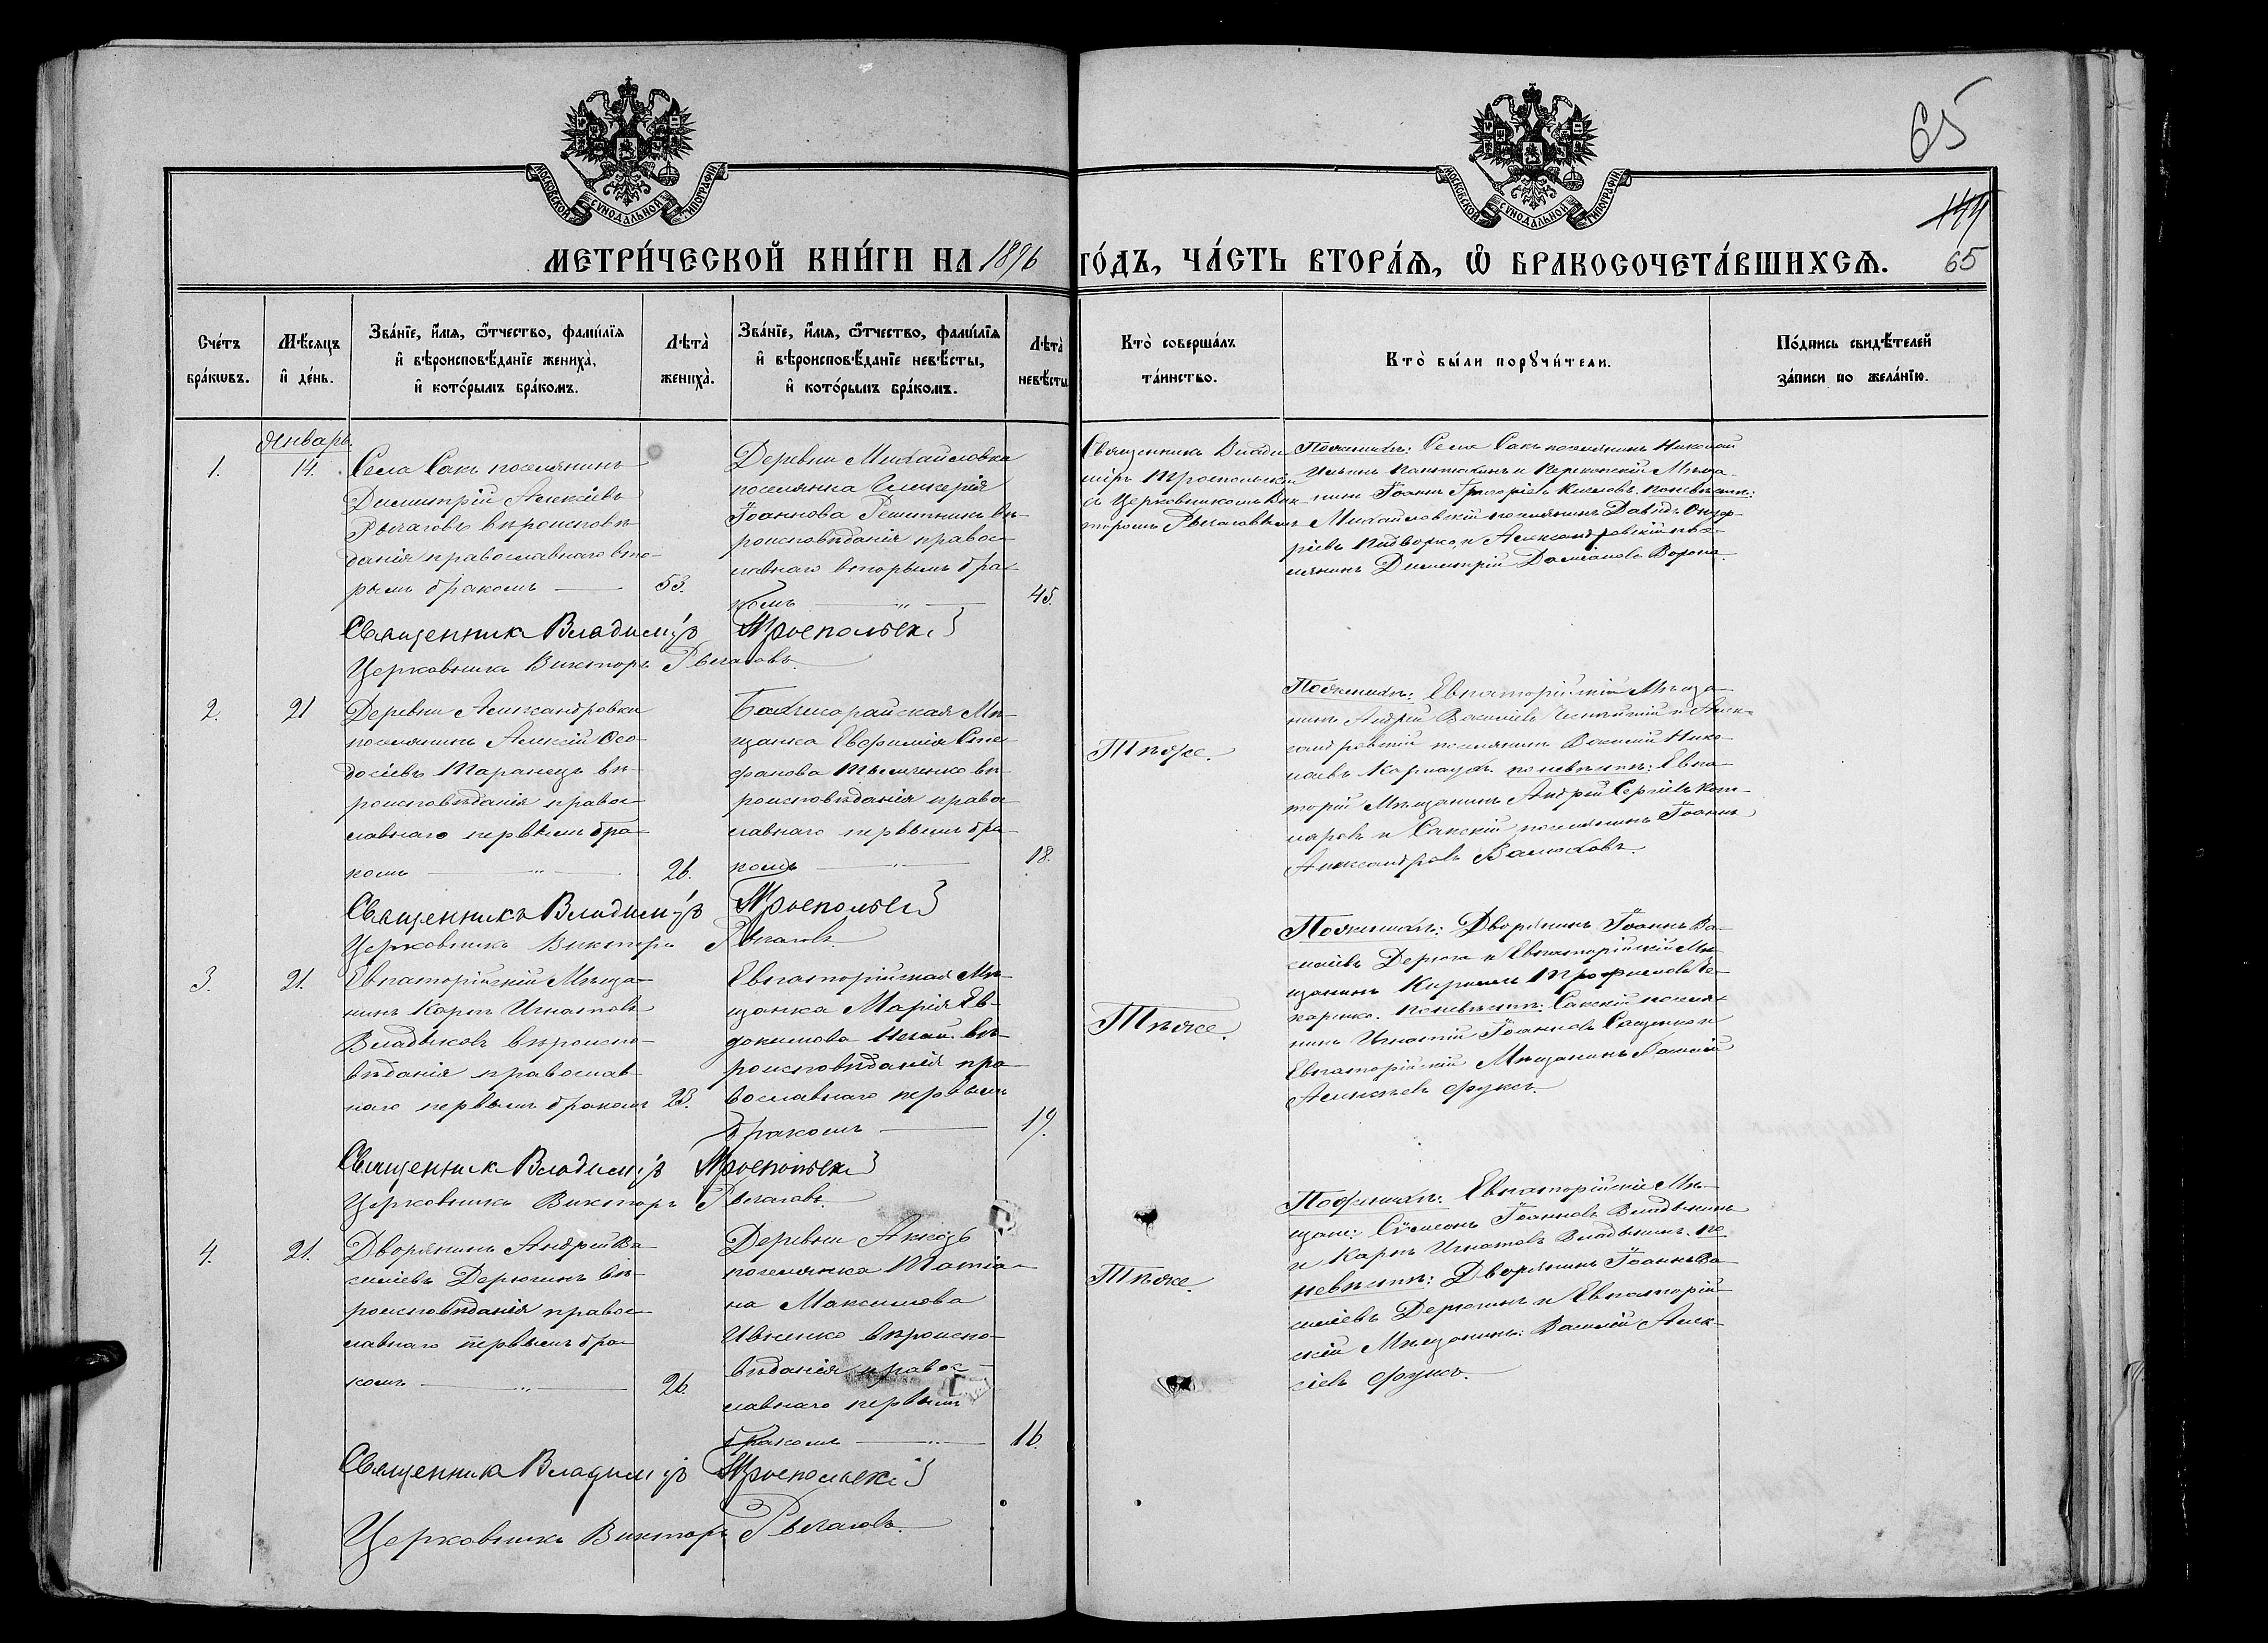 65
144
65
МОСКОВСКОЙ СУНОДАЛЬНОЙ ТИПОГРАФІИ
МОСКОВСКОЙ СУНОДАЛЬНОЙ ТИПОГРАФІИ
МЕТРИ́ЧЕСКОЙ КНИ́ГИ НА 1896 ГО́ДЪ, ЧА́СТЬ ВТОРА́Ѧ, Ѽ БРАКОСОЧЕТА́ВШИХСѦ.
Сче́тъ
бра́кѡвъ.
Мѣ́сяцъ
и҆ де́нь.
Зва́нїе, и҆́мя, ѻ҆́тчество, фами́лїя
и҆ вѣроисповѣ́данїе жениха̀,
и҆ кото́рымъ бра́комъ.
Лѣта̀
жениха̀.
Зва́нїе, и҆́мя, ѻ҆́тчество, фами́лїя
и҆ вѣроисповѣ́данїе невѣ́сты,
и҆ кото́рымъ бра́комъ.
Лѣта̀
невѣ́сты.
Кто̀ соверша́лъ
та́инство.
Кто̀ бы́ли порꙋчи́тели.
По́дпись свидѣ́телей
за́писи по жела́нїю.
Январь.
1.
14.
Села Сакъ поселянинъ
Димитрій Алексіевъ
Рычаговъ вѣроисповѣ-
данія православнаго вто-
рымъ бракомъ
53.
Деревни Михайловки
поселянка Гликерія
Іоаннова Решетникъ вѣ-
роисповѣданія правос-
лавнаго вторымъ бра-
комъ
45.
Священникъ Влади-
міръ Троепольскій
съ Церковникомъ Вик-
торомъ Рычаговымъ
Пожених: Села Сакъ поселянинъ Николай
Ильинъ и Перекопскій Мѣща-
нинъ Іоаннъ Григоріевъ Поневѣстѣ:
Михайловскій поселянинъ Давидъ Онуф-
ріевъ и Александровскій посе-
лянинъ Димитрій Даміановъ Ворона.
Священникъ Владиміръ Троепольскій
Церковникъ Викторъ Рычаговъ.
2.
21
Деревни Александровки
поселянинъ Алексій Ѳео-
досіевъ Таранецъ вѣ-
роисповѣданія правос-
лавнаго первымъ бра-
комъ
26.
Бахчисарайская Мѣ-
щанка Евфимія Сте-
фанова вѣ-
роисповѣданія правос-
лавнаго первымъ бра-
комъ
18.
Тѣже.
Пожених: Евпаторійскій Мѣща-
нинъ Андрей Василіевъ и Алек-
сандровскій поселянинъ Василій Нико-
лаевъ поневѣстѣ: Евпа-
торій Мѣщанинъ Андрей Сергіевъ Ком-
маровъ и Сакскій поселянинъ Іоаннъ
Александровъ
Священникъ Владиміръ Троепольскій
Церковникъ Викторъ Рычаговъ.
3.
21.
Евпаторійскій Мѣща-
нинъ Карпъ Игнатовъ
Владыковъ вѣроиспо-
вѣданія православ-
наго первымъ бракомъ
Евпаторійская Мѣ-
щанка Марія Ев-
докимова вѣ-
роисповѣданія пра-
вославнаго первымъ
бракомъ
19.
Тѣже.
Пожених: Дворянинъ Іоаннъ Ва-
силіевъ и Евпаторійскій Мѣ-
щанинъ Кириллъ Трофимовъ
Поневѣстѣ: Сакскій поселя-
нинъ Игнатій Іоанновъ Саценко и
Евпаторійскій Мѣщанинъ Василій
Алексіевъ Фуксъ.
Священникъ Владиміръ Троепольскій
Церковникъ Викторъ Рычаговъ.
4.
21.
Дворянинъ Андрей Ва-
силіевъ Дерюгинъ вѣ-
роисповѣданія правос-
лавнаго первымъ бра-
комъ
26.
Деревни
поселянка Татіа-
на Максимова
Ивженко вѣроиспо-
вѣданія правос-
лавнаго первымъ
бракомъ
16.
Тѣже.
Пожених: Евпаторійскіе Мѣ-
щане: Сѵмеонъ Іоанновъ Владыкинъ
и Карпъ Игнатовъ Владыкинъ. по
невѣстѣ: Дворянинъ Іоаннъ Ва-
силіевъ Дерюгинъ и Евпаторій-
скій Мѣщанинъ: Василій Алек-
сіевъ Фуксъ.
Священникъ Владиміръ Троепольскій
Церковникъ Викторъ Рычаговъ.